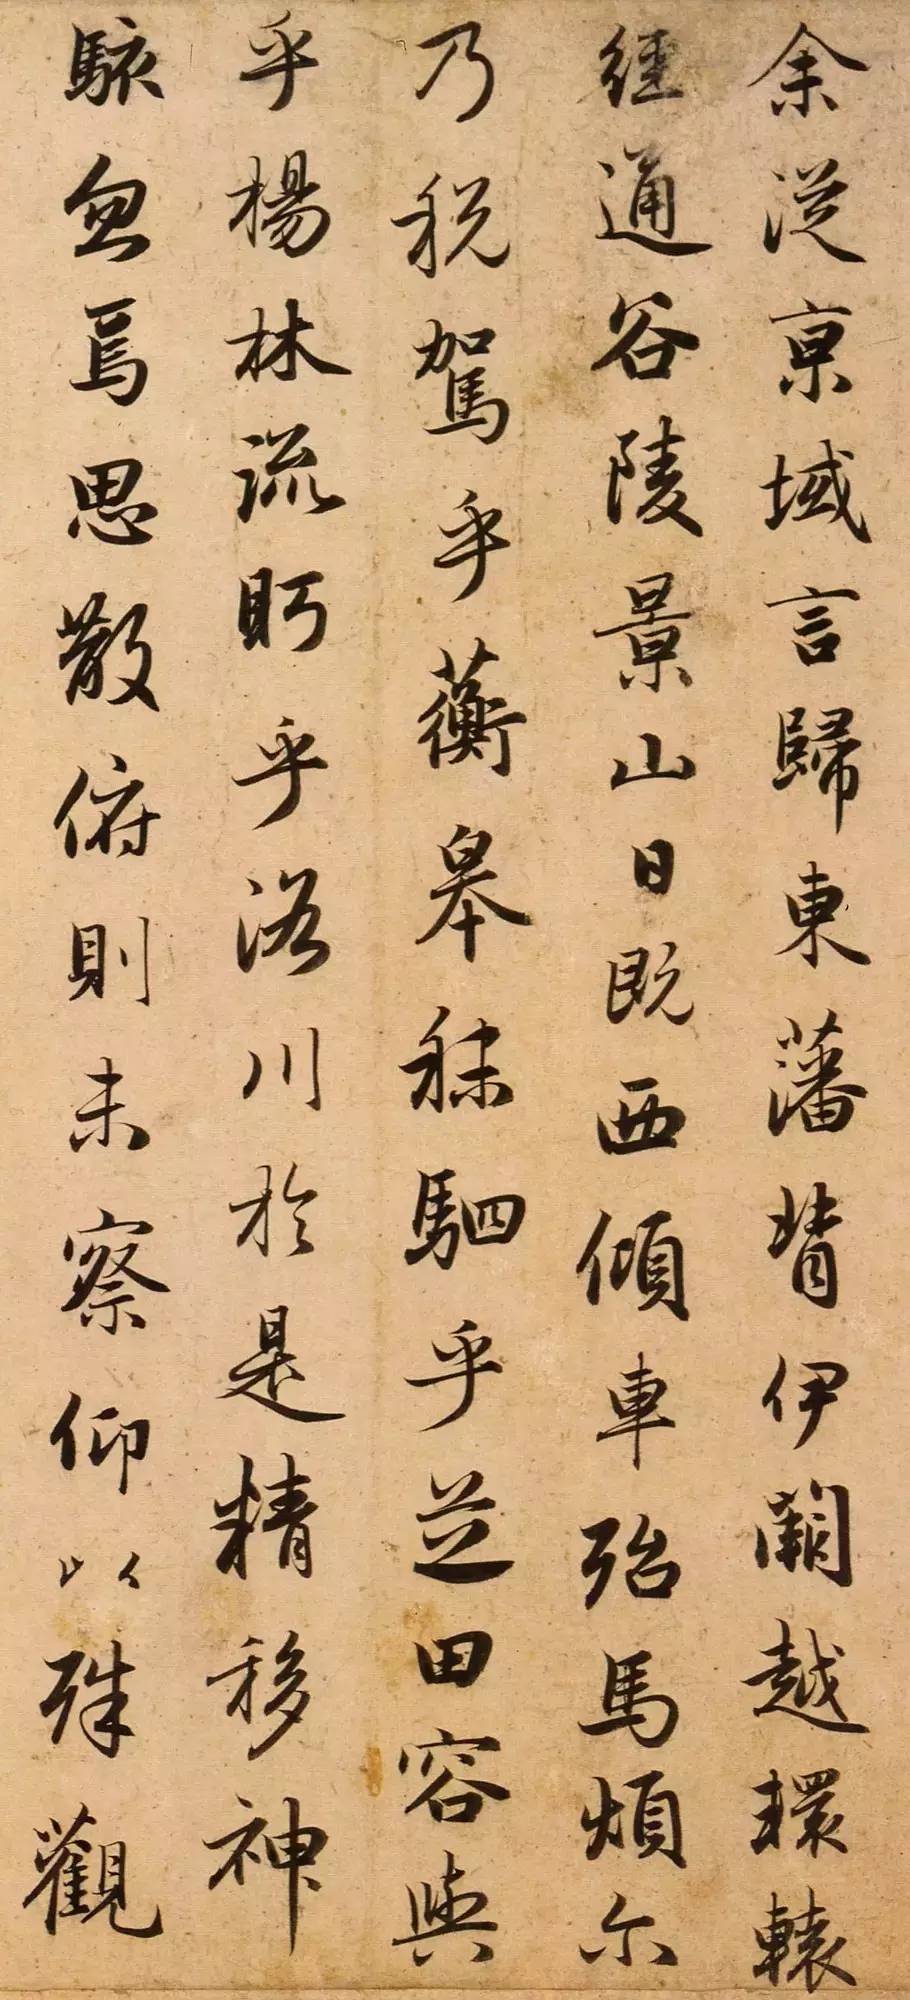 余從京域言歸東藩背伊闕越轘轅
經通谷陵景山日既西傾車殆馬煩尒
乃税駕乎蘅皋秣駟乎芝田容與
乎楊林流眄乎洛川於是精移神
駭忽焉思散俯則未察仰以殊觀